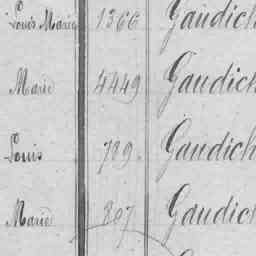 Louis Marie 1366 Gaudich
Marie 4449 Gaudich
Louis 789. Gaudich
Marie 807 Gaudich